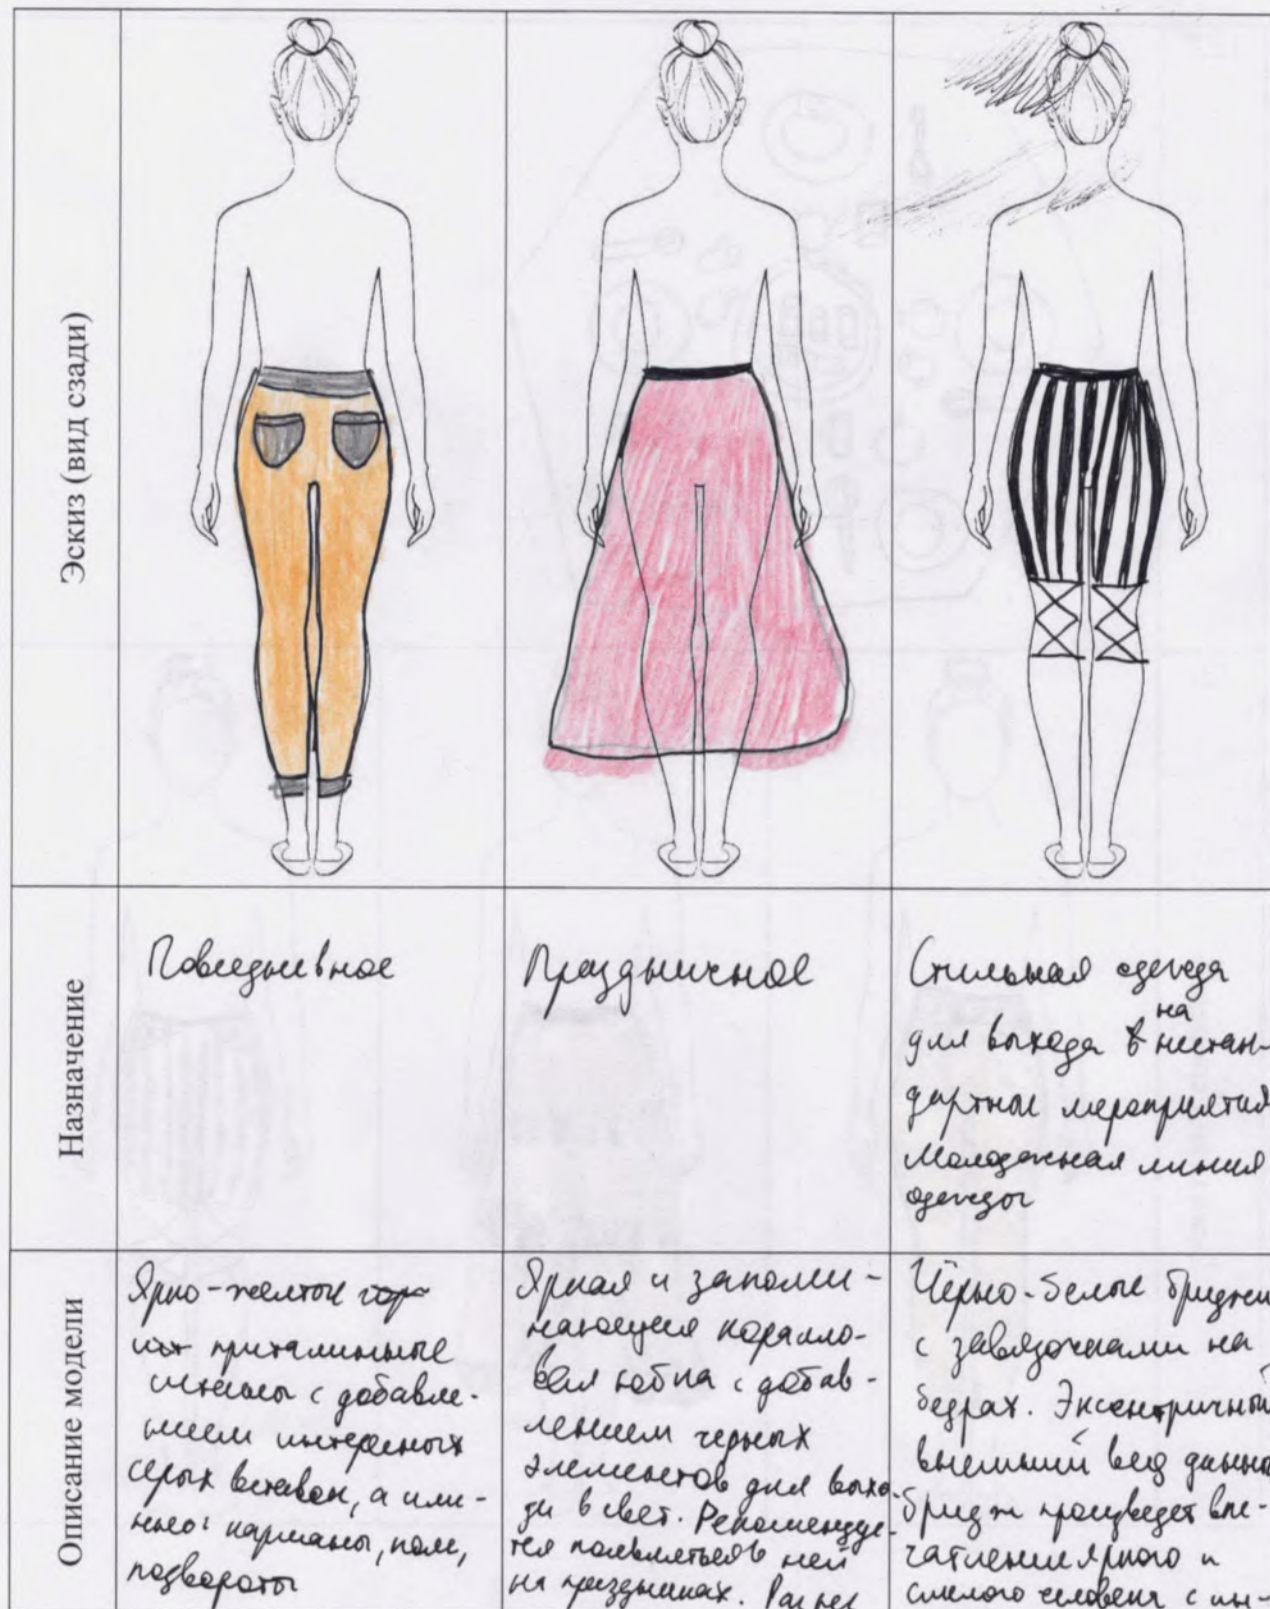 Эскиз (вид сзади)
Назначение
Повседневное
Праздничное
Стильная одежда
на
для выхода в нестан-
дартные мероприятия
Молодежная линия
одежды
Описание модели
Ярко-желтые
приталинные
штаны с добавле-
нием интересных
серых вставок, а име-
нно: карманы, пояс,
подвороты
Яркая и запоми-
нающаяся коралло-
вая юбка с добав-
лением черных
элементов для выхо-
да в свет. Рекомендуе-
тся появляться в ней
на праздниках.
Чёрно-белые бриджи
с завязочками на
бедрах. Эксентричный
внешний вид данных
бридж произведет впе-
чатление яркого и
смелого человека с